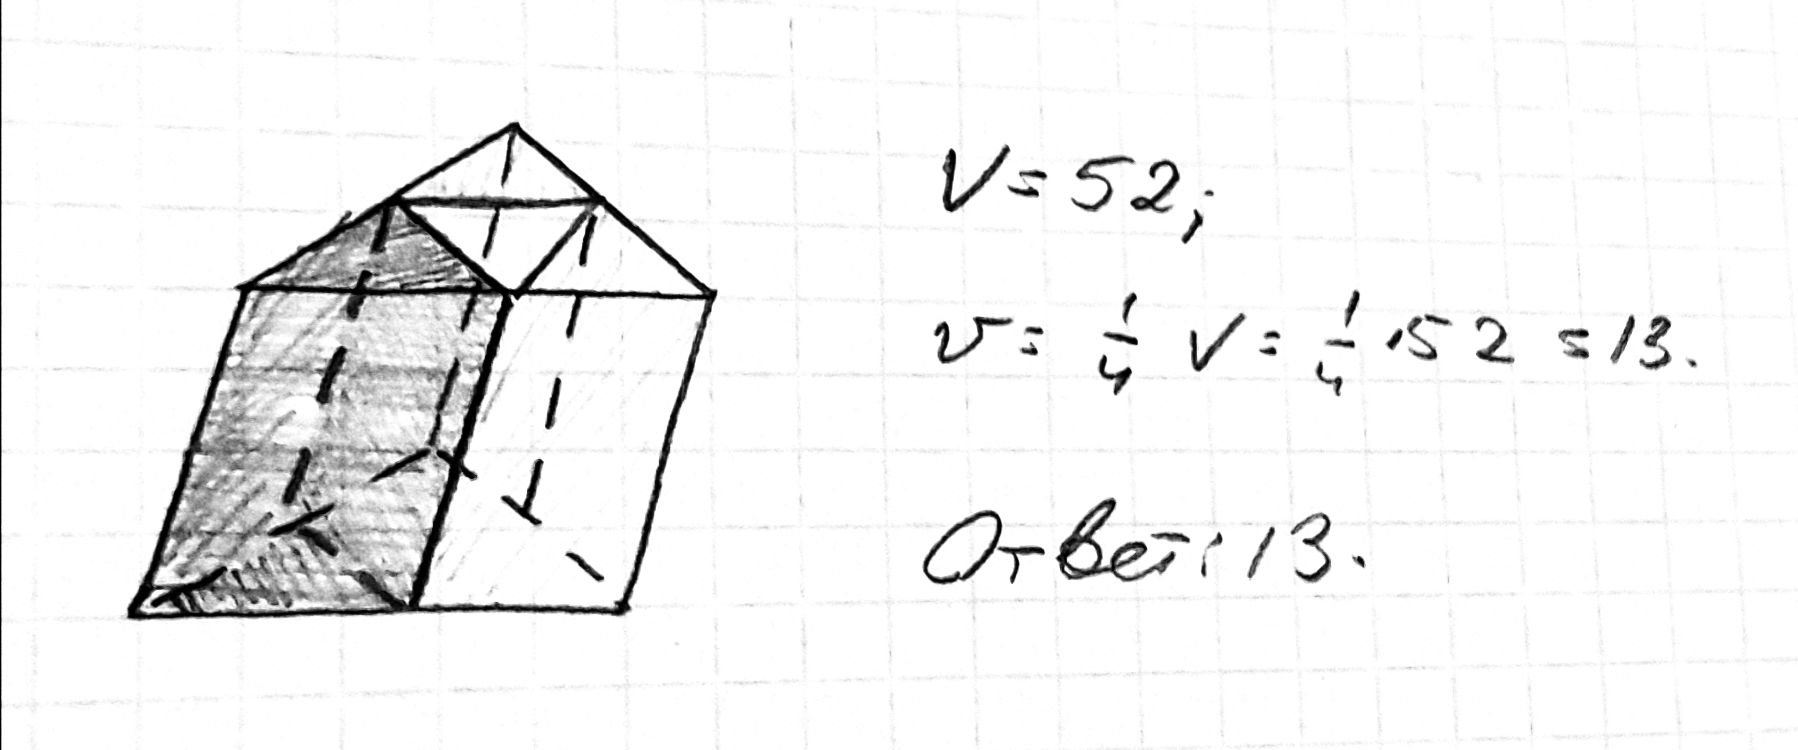 V = 52;
v = 1/4 V = 1/4 · 52 = 13.
Ответ: 13.